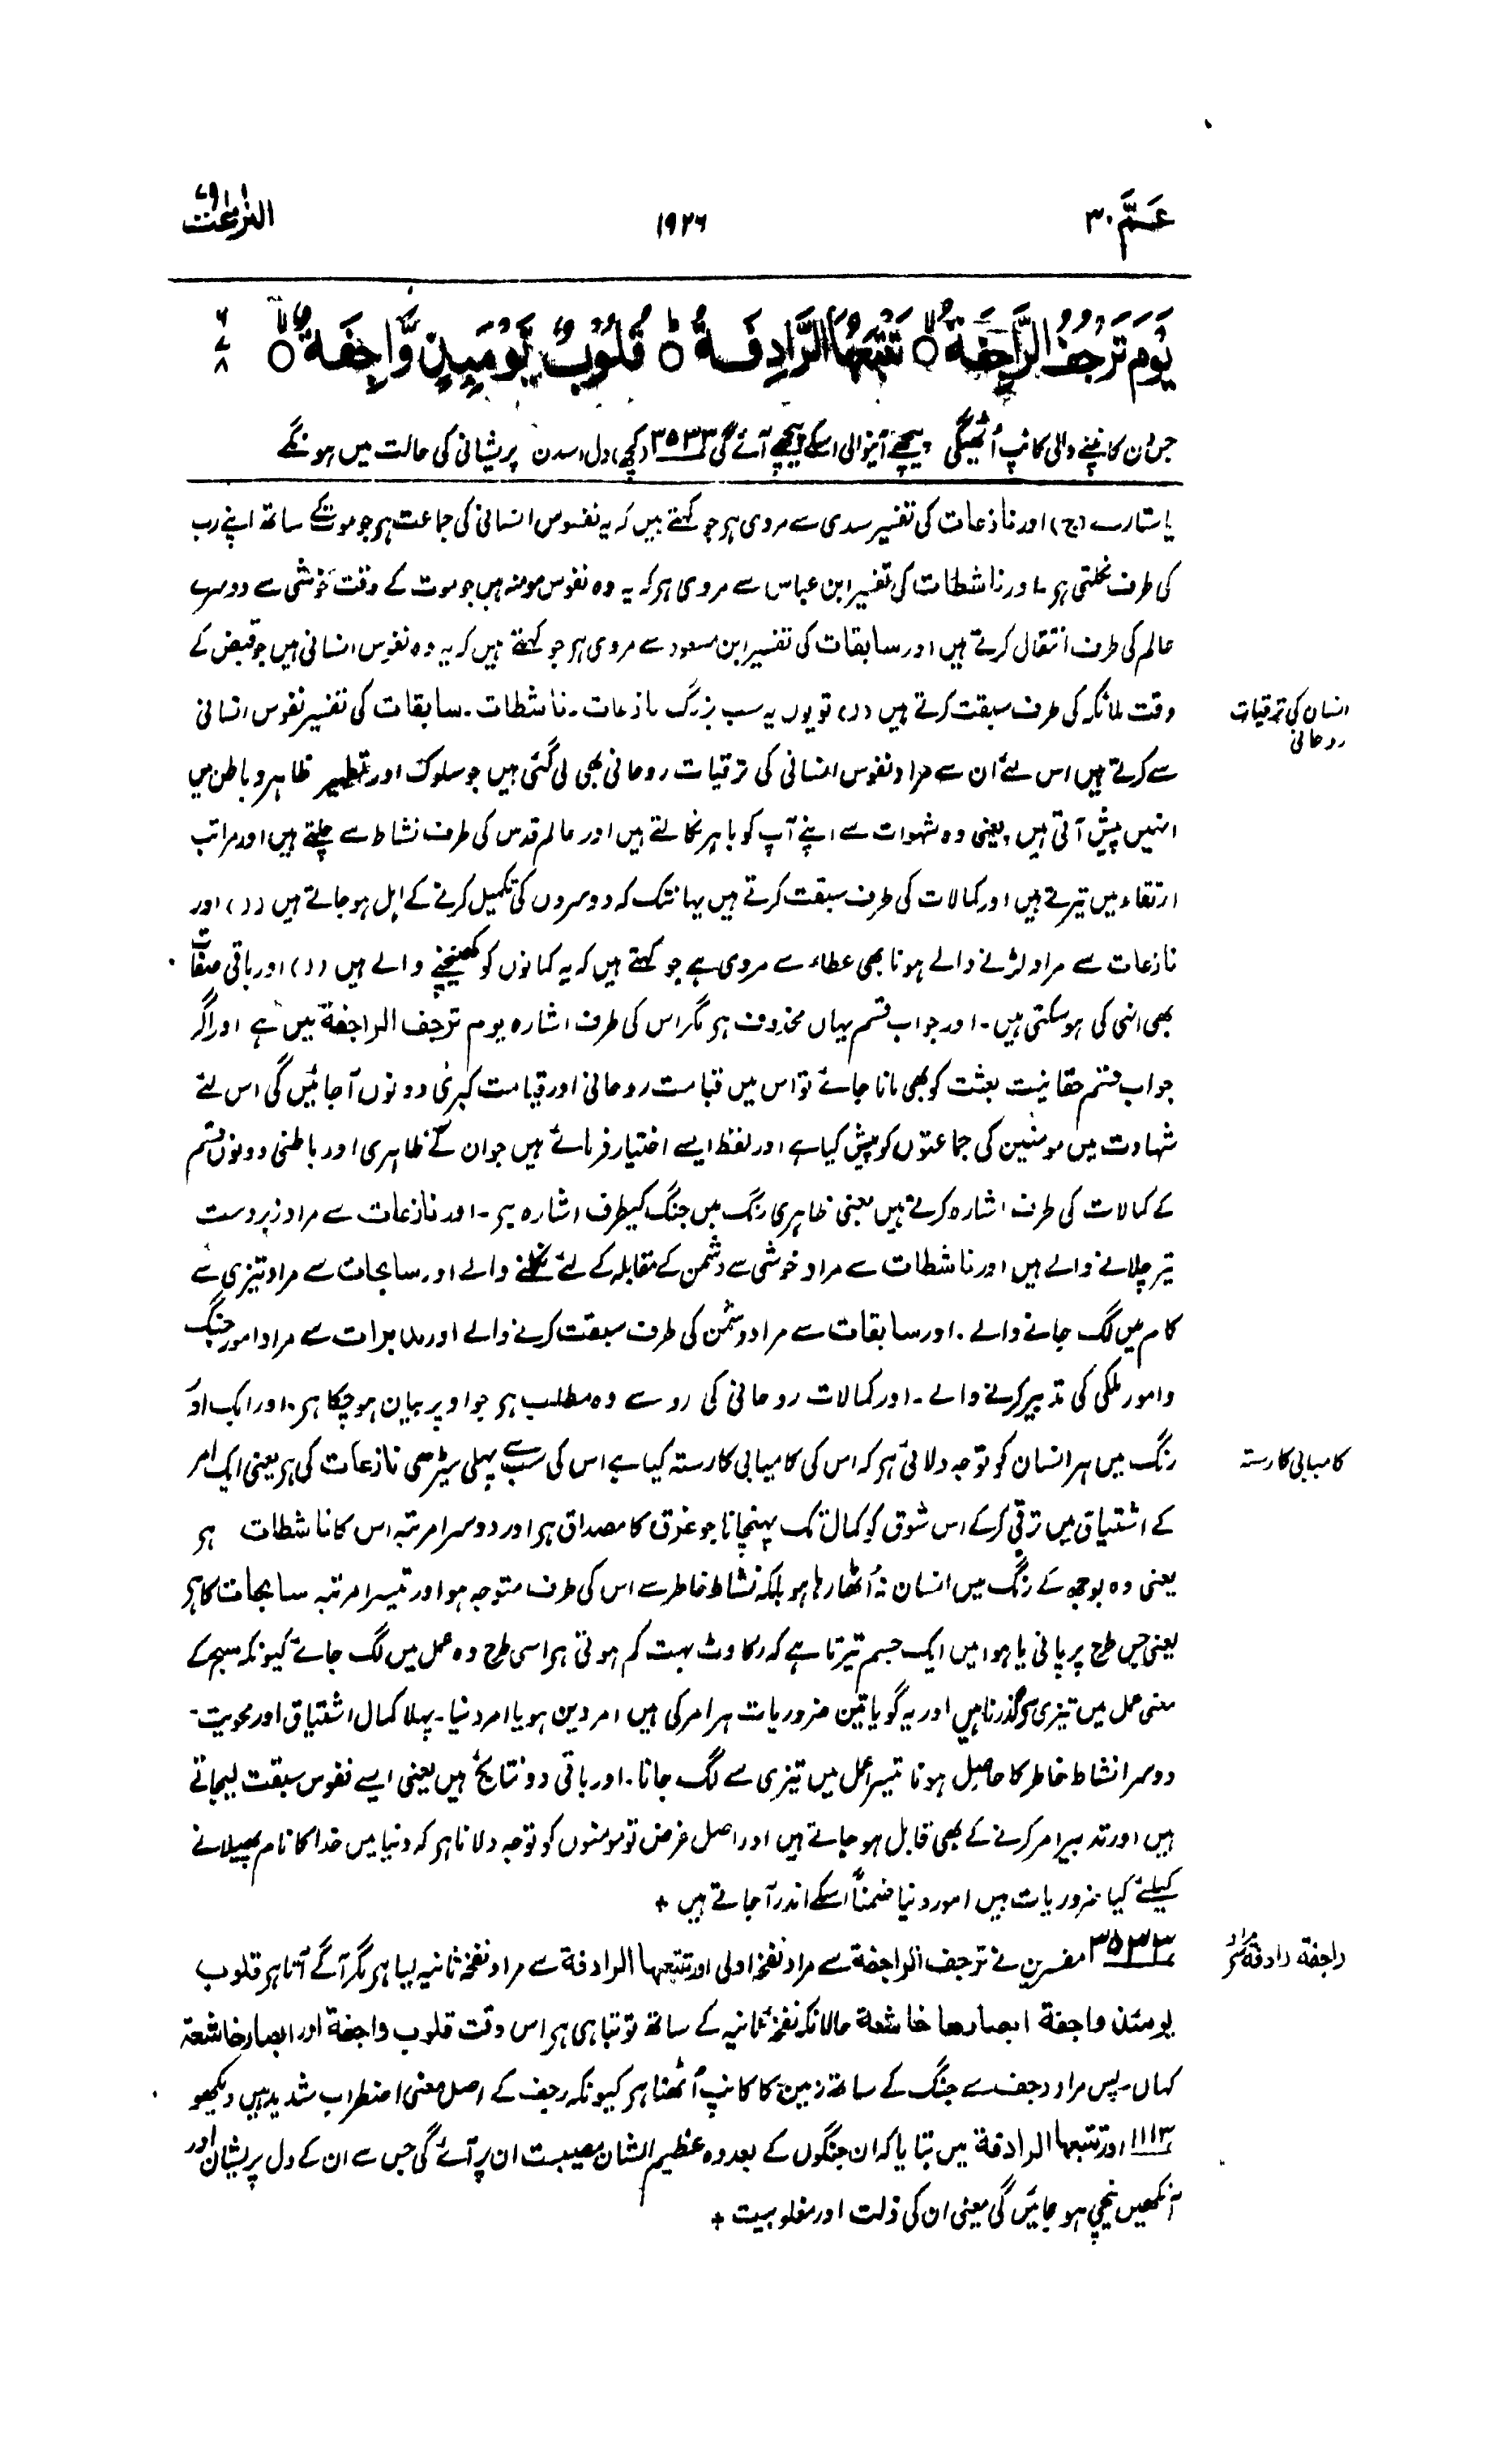 عَمَّ ٣٠
١٩٢٦
النٰزعٰت ٧٩
يَوْمَ تَرْجُفُ الرَّاجِفَةُ ۙ تَتْبَعُهَا الرَّادِفَةُ ؕ قُلُوْبٌ يَّوْمَىِٕذٍ وَّاجِفَةٌ ۙ ٦ ٧ ٨
جس دن کانپنے والی کانپ اُٹھیگی پیچھے آنیوالی اسکے پیچھے آئے گی ۳۵۳۳ (کچھ) دل اسدن پریشانی کی حالت میں ہونگے
یا ستارے (ج) اور نازعات کی تفسیر سدی سے مروی ہر جو کہتے ہیں کہ یہ نفوس انسانی کی جماعت ہر جو موت کے ساتھ اپنے رب
کی طرف نکلتی ہر۔ اور ناشطات کی تفسیر ابن عباس سے مروی ہر کہ یہ وہ نفوس مومنہ ہیں جو موت کے وقت خوشی سے دوسرے
عالم کی طرف انتقال کرتے ہیں اور سابقات کی تفسیر ابن مسعود سے مروی ہر جو کہتے ہیں کہ یہ وہ نفوس انسانی ہیں جو قبض کے
وقت ملائکہ کی طرف سبقت کرتے ہیں (ر) تو یوں یہ سب بزرگ نازعات۔ ناشطات۔ سابقات کی تفسیر نفوس انسانی
انسان کی ترقیات
روحانی
سے کرتے ہیں اس لئے ان سے مراد نفوس انسانی کی ترقیات روحانی بھی لی گئی ہیں جو سلوک اور تطہیر ظاہر و باطن میں
انہیں پیش آتی ہیں یعنی وہ شہوات سے اپنے آپ کو باہر نکالتے ہیں اور عالم قدس کی طرف نشاط سے چلتے ہیں اور مراتب
ارتقاء میں تیرتے ہیں اور کمالات کی طرف سبقت کرتے ہیں یہانتک کہ دوسروں کی تکمیل کرنے کے اہل ہو جاتے ہیں (ر) اور
نازعات سے مراد لڑنے والے ہونا بھی عطاء سے مروی ہے جو کہتے ہیں کہ یہ کمانوں کو کھینچنے والے ہیں (ر) اور باقی صفات
بھی انہی کی ہو سکتی ہیں۔ اور جواب قسم یہاں محذوف ہر مگر اس کی طرف اشارہ یوم ترجف الراجفة میں ہے اور اگر
جواب قسم حقانیت بعثت کو بھی مانا جائے تو اس میں قیامت روحانی اور قیامت کبریٰ دونوں آ جائیں گی اس لئے
شہادت میں مومنین کی جماعتوں کو پیش کیا ہے اور لفظ ایسے اختیار فرمائے ہیں جو ان کے ظاہری اور باطنی دونوں قسم
کے کمالات کی طرف اشارہ کرتے ہیں یعنی ظاہری رنگ میں جنگ کیطرف اشارہ ہر۔ اور نازعات سے مراد زبردست
تیر چلانے والے ہیں اور ناشطات سے مراد خوشی سے دشمن کے مقابلہ کے لئے نکلنے والے اور سابحات سے مراد تیزی سے
کام میں لگ جانے والے۔ اور سابقات سے مراد دشمن کی طرف سبقت کرنے والے اور مدبرات سے مراد امور جنگ
و امور ملکی کی تدبیر کرنے والے۔ اور کمالات روحانی کی رو سے وہ مطلب ہر جو اوپر بیان ہو چکا ہر۔ اور ایک اور
رنگ میں ہر انسان کو توجہ دلائی ہر کہ اس کی کامیابی کا رستہ کیا ہے اس کی سب سے پہلی سیڑھی نازعات کی ہر یعنی ایک امر
کامیابی کا رستہ
کے اشتیاق میں ترقی کر کے اس شوق کو کمال تک پہنچانا جو غرق کا مصداق ہر اور دوسرا مرتبہ اس کا ناشطات ہر
یعنی وہ بوجھ کے رنگ میں انسان نہ اُٹھا رہا ہو بلکہ نشاط خاطر سے اس کی طرف متوجہ ہو اور تیسرا مرتبہ سابحات کا ہر
یعنی جس طرح پر پانی یا ہوا میں ایک جسم تیرتا ہے کہ رکاوٹ بہت کم ہوتی ہر اسی طرح وہ عمل میں لگ جائے کیونکہ سبح کے
معنی عمل میں تیزی سے گذرنا ہیں اور یہ گویا تین ضروریات ہر امر کی ہیں امر دین ہو یا امر دنیا۔ پہلا کمال اشتیاق اور محویت۔
دوسرا نشاط خاطر کا حاصل ہونا تیسرا عمل میں تیزی سے لگ جانا۔ اور باقی دو نتائج ہیں یعنی ایسے نفوس سبقت لیجاتے
ہیں اور تدبیر امر کرنے کے بھی قابل ہو جاتے ہیں اور اصل غرض تو مومنوں کو توجہ دلانا ہر کہ دنیا میں خدا کا نام پھیلانے
کیلئے کیا ضروریات ہیں امور دنیا ضمناً اسکے اندر آ جاتے ہیں +
۳۵۳۳ مفسرین نے ترجف الراجفة سے مراد نفخہ اولی اور تتبعها الرادفة سے مراد نفخہ ثانیہ لیا ہر مگر آگے آتا ہر قلوب
راجفة رادفة سے مراد
یومئذ واجفة ابصارها خاشعة حالانکہ نفخہ ثانیہ کے ساتھ تو تباہی ہر اس وقت قلوب واجفة اور ابصار خاشعة
کہاں۔ پس مراد رجف سے جنگ کے ساتھ زمین کا کانپ اُٹھنا ہر کیونکہ رجف کے اصل معنی اضطراب شدید ہیں دیکھو
۱۱۱۳ اور تتبعها الرادفة میں بتایا کہ ان جنگوں کے بعد وہ عظیم الشان مصیبت ان پر آئے گی جس سے ان کے دل پریشان اور
آنکھیں نیچی ہو جائیں گی یعنی ان کی ذلت اور مغلوبیت +